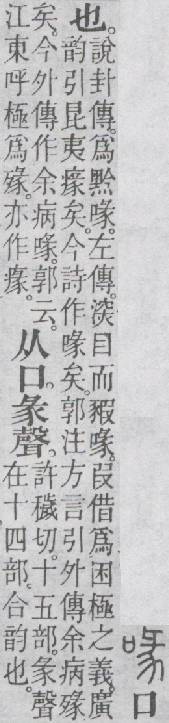 喙 口
也。說卦傳。爲黔喙。左傳。㴱目而豭喙。叚借爲困極之義。廣
韵引昆夷瘃矣。今詩作喙矣。郭注方言引外傳余病𣨶
矣。今外傳作余病喙。郭云。
江東呼極爲𣨶。亦作瘃。
从口。彖聲。
許穢切。十五部。彖聲
在十四部。合韵也。